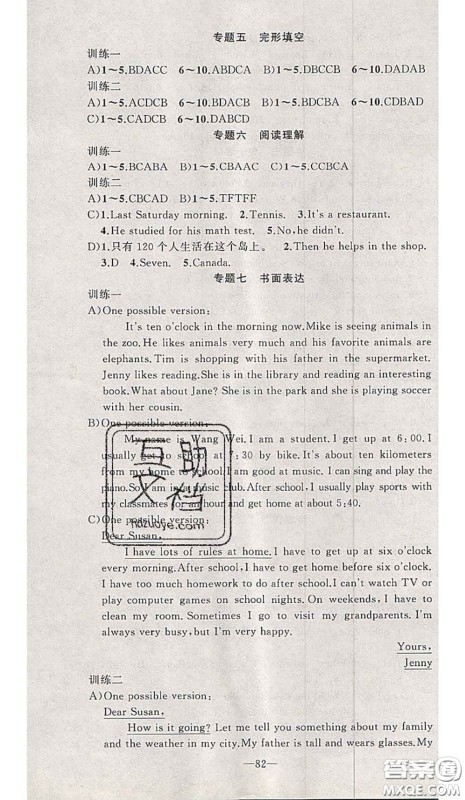 专题五 完形填空
训练一
A)1～5.BDACC 6～10.ABDCA B)1～5.DBCCB 6～10.DADAB
训练二
A)1～5.ACDCB 6～10.DBACB B)1～5.BDCBA 6～10.CDBAD
C)1～5.CADCB 6～10.DABCD
专题六 阅读理解
训练一
A)1～5.BCABA B)1～5.CBAAC C)1～5.CCBCA
训练二
A)1～5.CBCAD B)1～5.TFTFF
C)1.Last Saturday morning. 2.Tennis. 3.It's a restaurant.
4.He studied for his math test. 5.No,he didn't.
D)1.只有 120 个人生活在这个岛上。 2.Then he helps in the shop.
3.D 4.Seven. 5.Canada.
专题七 书面表达
训练一
A)One possible version:
It's ten o'clock in the morning now.Mike is seeing animals in
the zoo.He likes animals very much and his favorite animals are
elephants. Tim is shopping with his father in the supermarket.
Jenny likes reading.She is in the library and reading an interesting
book.What about Jane? She is in the park and she is playing soccer
with her cousin.
B)One possible version:
My name is Wang Wei.I am a student.I get up at 6:00.I
usually get to school at 7:30 by bike.It's about ten kilometers
from my home to school.I am good at music.I can sing and play the
piano.So I am in a music club.After school,I usually play sports with
my classmates for an hour and get home at about 5:40.
C)One possible version:
Dear Susan,
I have lots of rules at home.I have to get up at six o'clock
every morning.After school,I have to get home before six o'clock.
I have too much homework to do after school.I can't watch TV or
play computer games on school nights. On weekends, I have to
clean my room. Sometimes I go to visit my grandparents. I'm
always very busy,but I'm very happy.
Yours,
Jenny
训练二
A)One possible version:
Dear Susan,
How is it going? Let me tell you something about my family
and the weather in my city.My father is tall and wears glasses.My
—82—
互助文档
hazuoye.com
答案圈
MXQE.COM